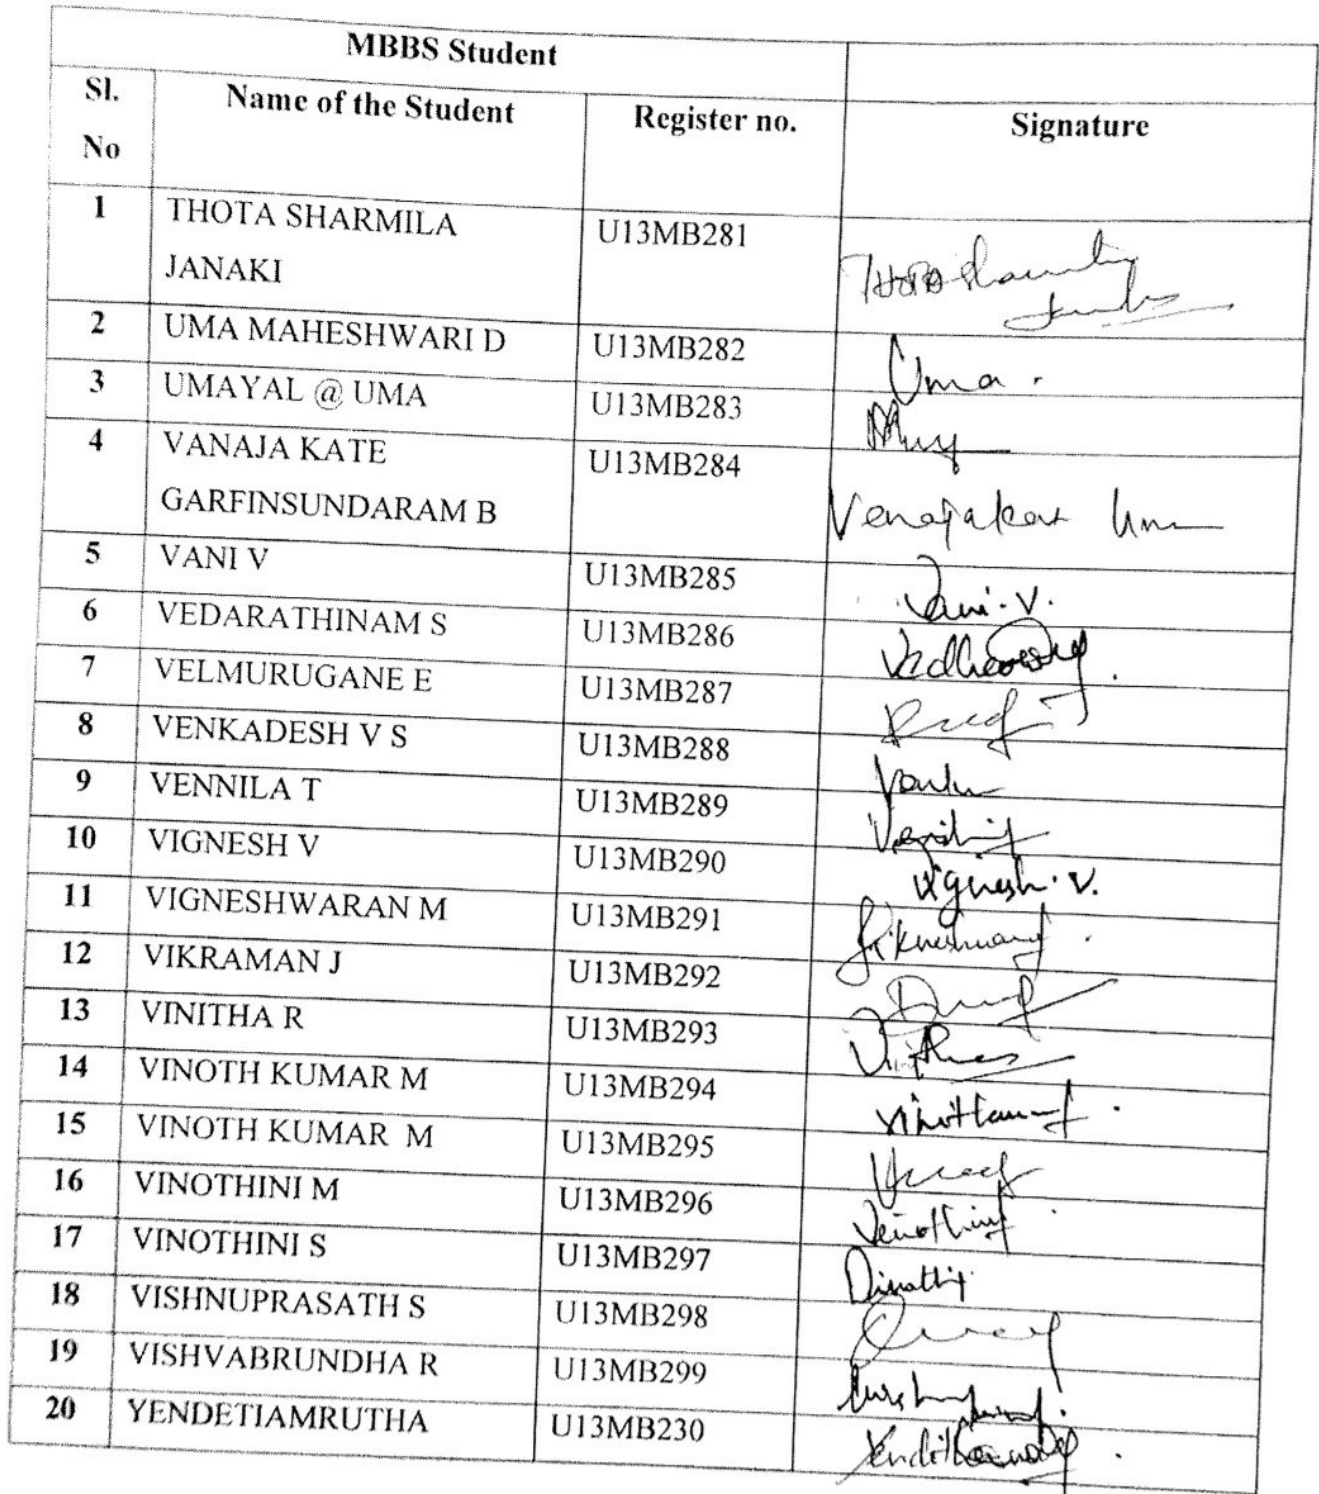 MBBS Student
Sl. No Name of the Student Register no. Signature
1 THOTA SHARMILA JANAKI U13MB281
2 UMA MAHESHWARI D U13MB282 Uma.
3 UMAYAL @ UMA U13MB283
4 VANAJA KATE GARFINSUNDARAM B U13MB284
5 VANI V U13MB285 Vani. V.
6 VEDARATHINAM S U13MB286
7 VELMURUGANE E U13MB287
8 VENKADESH V S U13MB288
9 VENNILA T U13MB289
10 VIGNESH V U13MB290 Vignesh. V.
11 VIGNESHWARAN M U13MB291
12 VIKRAMAN J U13MB292
13 VINITHA R U13MB293
14 VINOTH KUMAR M U13MB294
15 VINOTH KUMAR M U13MB295
16 VINOTHINI M U13MB296
17 VINOTHINI S U13MB297
18 VISHNUPRASATH S U13MB298
19 VISHVABRUNDHA R U13MB299
20 YENDETIAMRUTHA U13MB230